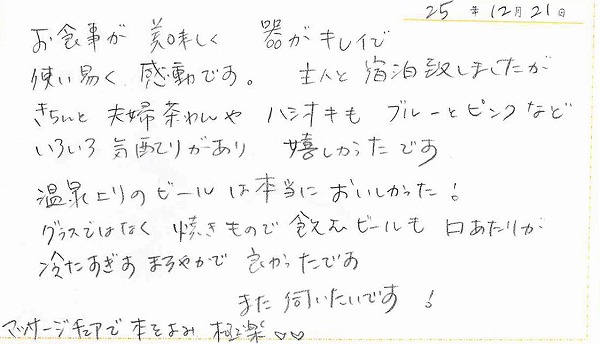 25年12月21日
お食事が 美味しく 器がキレイで
使い易く 感動です。 主人と 宿泊致しましたが
きちんと 夫婦茶わんや ハシオキも ブルーとピンクなど
いろいろ 気配りがあり 嬉しかったです
温泉上りのビールは本当に おいしかった!
グラスではなく 焼きもので 飲むビールも 口あたりが
冷たすぎず まろやかで 良かったです
また 伺いたいです!
マッサージチェアで 本をよみ 極楽♡♡